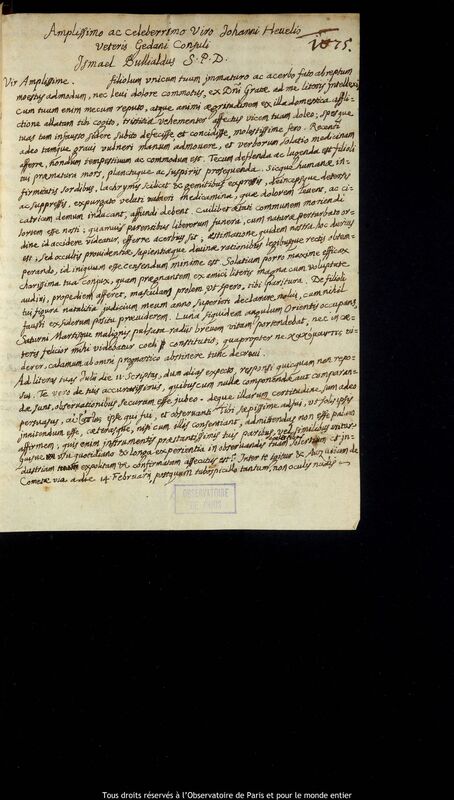 Amplissimo ac Celeberrimo Viro Johanni Hevelio
Veteris Gedani Consuli
1075.
Ismael Bullialdus S. P. D.
Vir Amplissime. filiolum unicum tuum immaturo ac acerbo fato abreptum
moestus admodum, nec levi dolore commotus, ex Dni Gratae ad me literis intellexi
cum tuam enim mecum reputo, atque animi aegritudinem ex illa domestica afflic-
tione allatam tibi cogito, tristitia vehementer affectus vicem tuam doleo; spes que
tuas tam infausto sidere subito defecisse et concidisse molestissime fero. Recenti
adeo tamque gravi vulneri manum admovere, et verborum solatio medicinam
afferre, nondum tempestivum ac commodum est. Tecum deflenda ac lugenda est filioli
tui praematura mors, planctuque ac suspiriis prosequenda. Sicque humanae in-
firmitatis sordibus, lachrymis scilicet & gemitibus expressis, deincepsque detersis
ac suppressis, expurgato velati vulneri medicamina, quae dolorem levent, ac ci-
catricem demum inducant, affundi debent. Cuilibet aetati communem moriendi
sortem esse noti; quamvis parentibus liberorum funera, cum natura perturbato or-
dine id accidere videatur, efferre acerbius sit, aestimatione quidem nostra hoc durius
est, sed occultis providentiae sapientiaeque divinae rationibus legibusque rectis obtem-
perando, id iniquum esse censendum minime est. Solatium porro maxime efficax
charissima tua conjux, quam praegnantem ex amici literis magna cum voluptate
audivi, propediem afferet, masculam prolem, ut spero, tibi paritura. De filioli
tui figura natalitia judicium meum anno superiori declarare nolui, cum nihil
fausti ex siderum positu praeviderem. Luna siquidem angulum Orientis occupans,
Saturni Martisque malignis pulsata radiis brevem vitam portendebat, nec in cae-
teris felicior mihi videbatur coeli constitutio; quapropter
derer, calamum ab omni prognostico abstinere tunc decrevi.
Ad literas tuas Julii die 11 scriptas, dum alias expecto, responsi quicquam non repo-
sui. Te vero de tuis accuratissimis, quibuscum nullae componendae aut comparan-
dae sunt, observationibus securum esse jubeo. deque illarum certitudine sum adeo
persuasus, ipse qui tui, et observanti tibi saepissime adfui, ut solis ipsis
innitendum esse, caeterasque, nisi cum illis consentiant, admittendas non esse palam
affirmem; quis enim instrumentis praestantissimis tuis paribus, vel similibus instruc-
tusve usu quotidiano & longa experientia in observandis solertiam et in-
dustriam exquisitam vi confirmatam assecutus est? Inter te igitur & Auzutium de
Cometae via a die 14 Februarii postquam tubospicillo tantum, non oculis nudis
OBSERVATOIRE
DE PARIS
Tous droits réservés à l'Observatoire de Paris et pour le monde entier